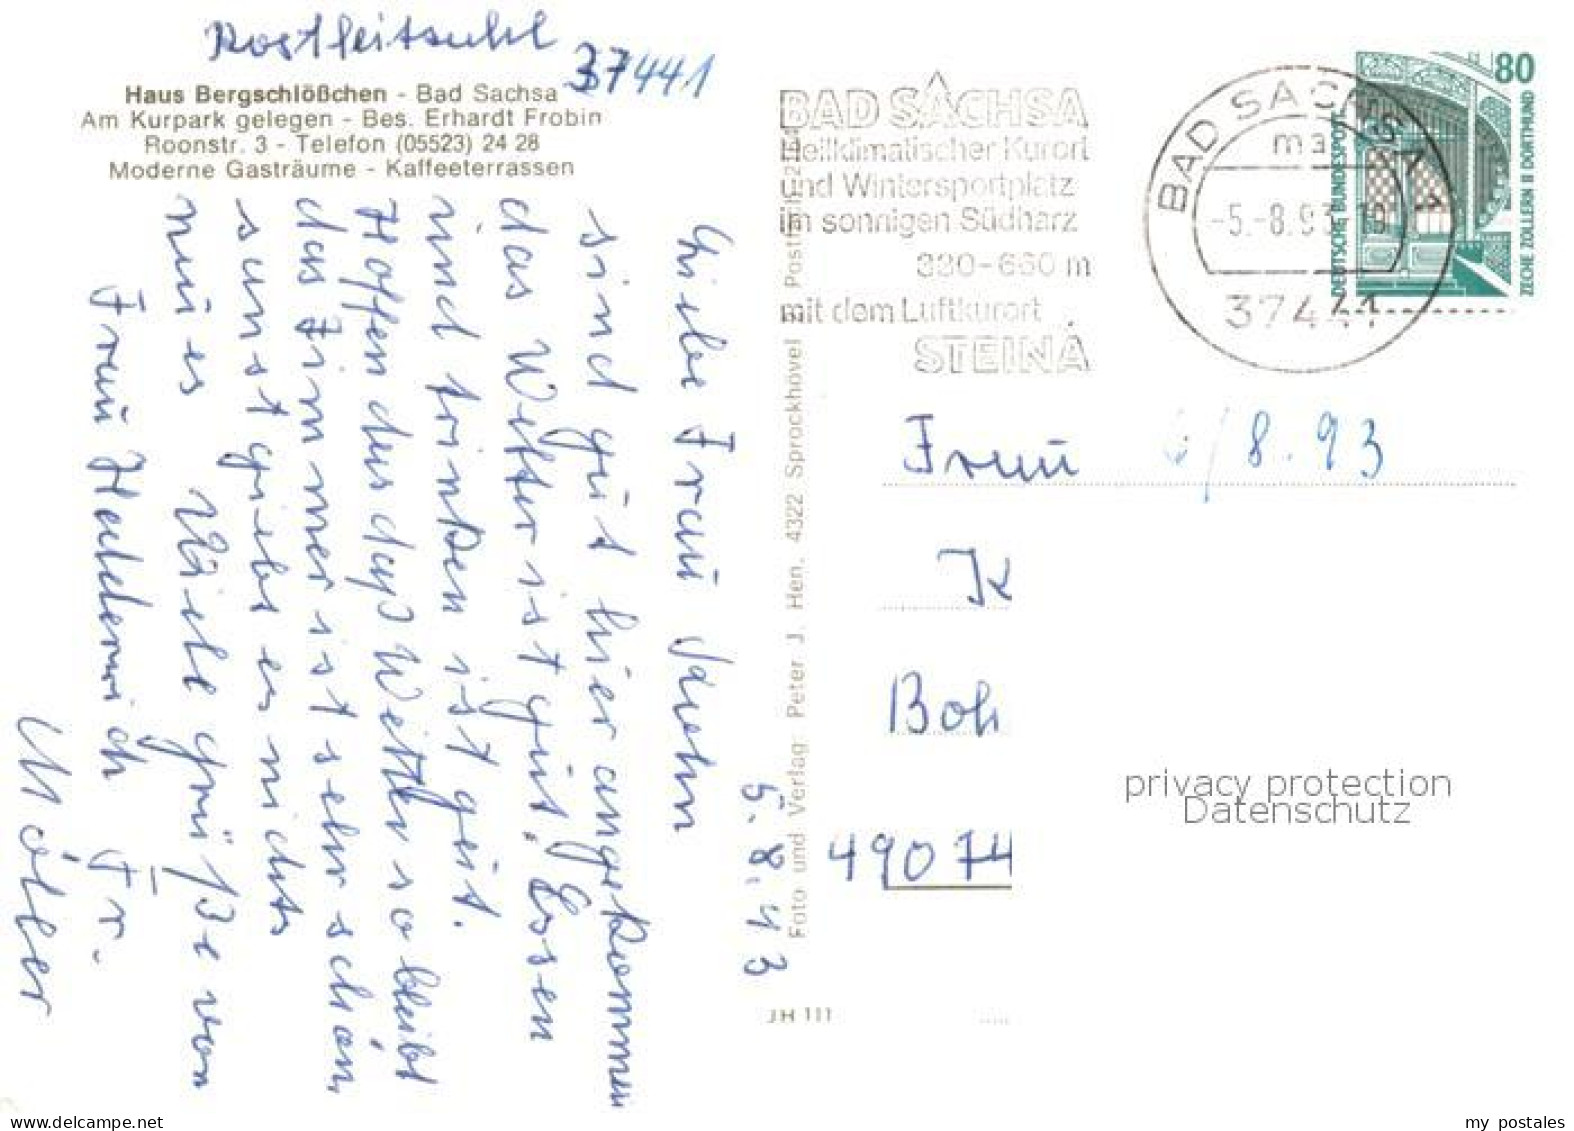 Postleitzuhl
37441
Haus Bergschlößchen - Bad Sachsa
Am Kurpark gelegen - Bes. Erhardt Frobin
Roonstr. 3 - Telefon (05523) 24 28
Moderne Gasträume - Kaffeeterrassen
Liebe Frau
sind gut hier angekommen
das Wetter ist gut. Essen
und trinken ist gut.
Hoffen das das Wetter so bleibt
das Zimmer ist sehr schön,
sonst giebs es nichts
neues Viele grüße von
Frau Hedderwich Fr.
Möller
5.8.93
Foto und Verlag: Peter J. Hen, 4322 Sprockhövel
JH 111
BAD SACHSA
Heilklimatischer Kurort
und Wintersportplatz
im sonnigen Südharz
320-660 m
mit dem Luftkurort
STEINA
BAD SACHSA 1
ma
-5.-8.93-18
37441
80
DEUTSCHE BUNDESPOST
ZECHE ZOLLERN II DORTMUND
Frau 6/8.93
K
Boh
49074
privacy protection
Datenschutz
my postales
www.delcampe.net